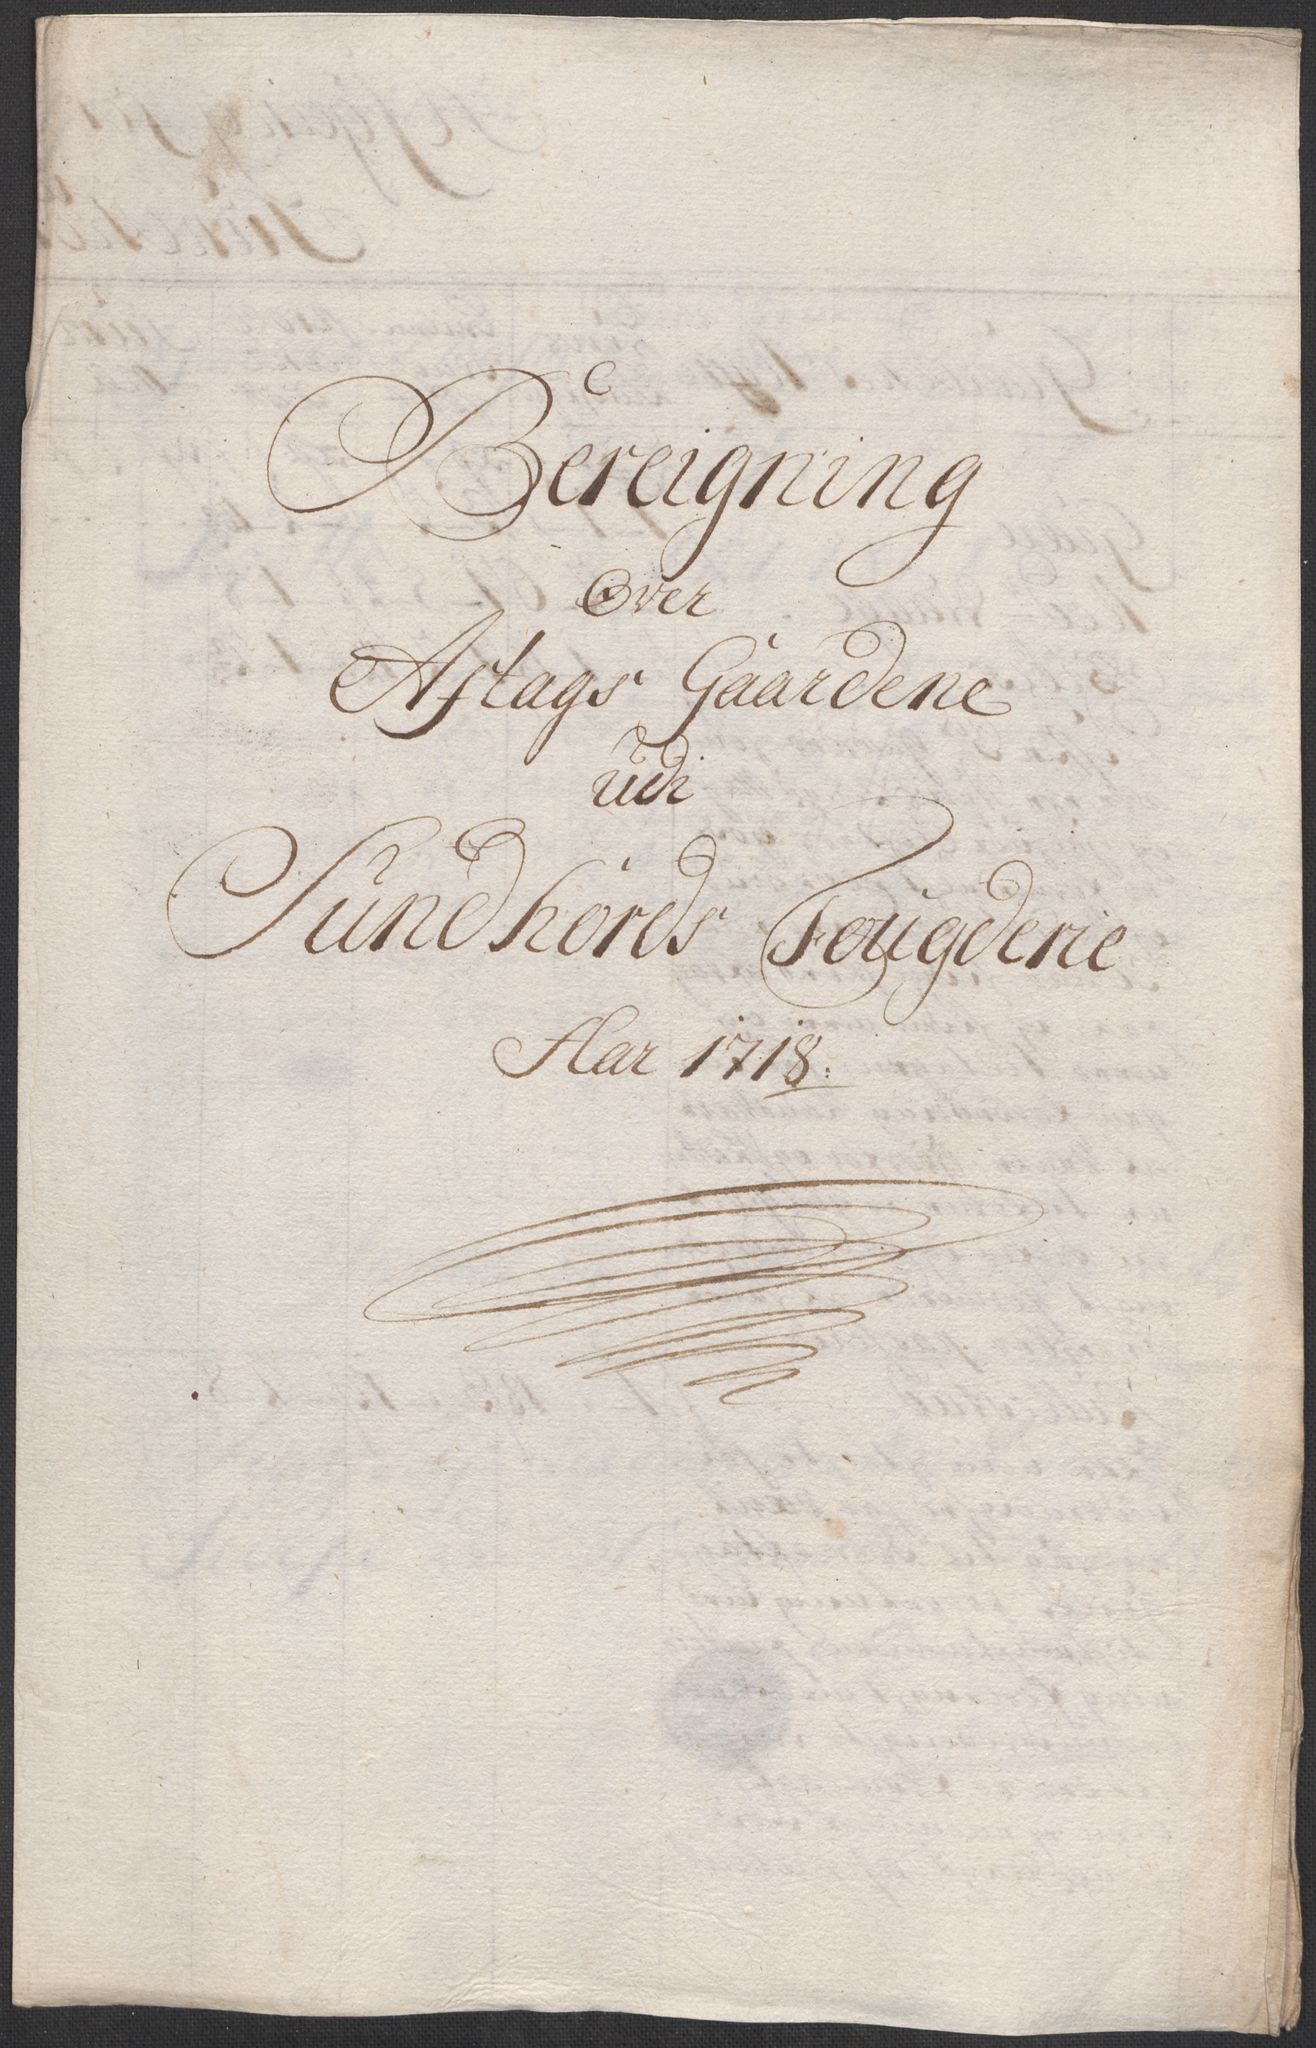 Bereigning
Over
Aftags Gaardene
udi
Sundhords Fougderie
Aar 1718.